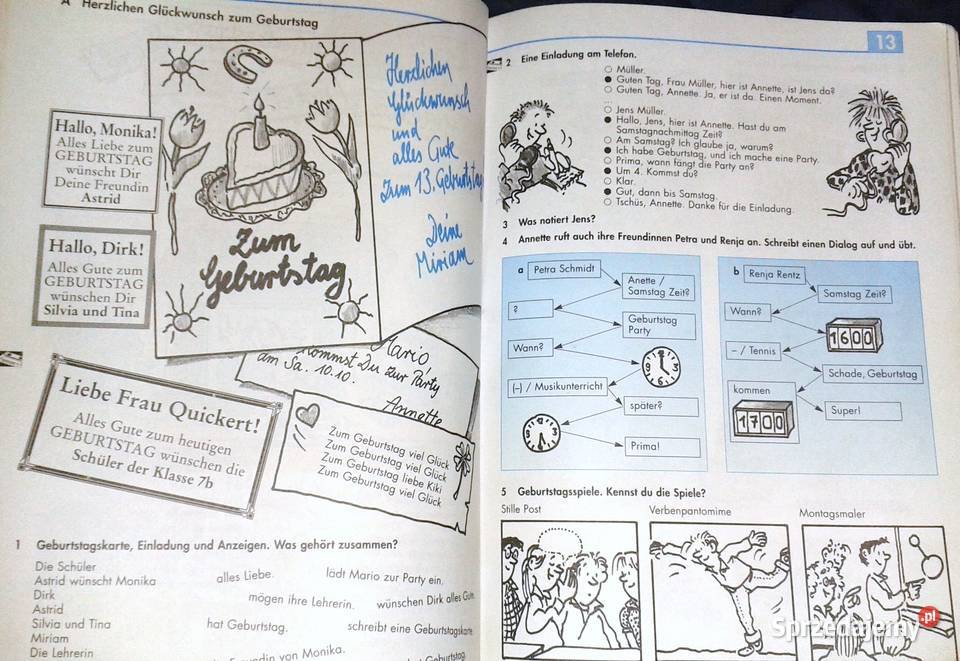 A Herzlichen Glückwunsch zum Geburtstag
Hallo, Monika!
Alles Liebe zum
GEBURTSTAG
wünscht Dir
Deine Freundin
Astrid
Hallo, Dirk!
Alles Gute zum
GEBURTSTAG
wünschen Dir
Silvia und Tina
Zum
Geburtstag
Herzlichen
Glückwunsch
und
alles Gute
zum 13. Geburtstag
Deine
Miriam
Mario
kommst Du zur Party
am Sa. 10.10.
Annette
Liebe Frau Quickert!
Alles Gute zum heutigen
GEBURTSTAG wünschen die
Schüler der Klasse 7b
Zum Geburtstag viel Glück
Zum Geburtstag viel Glück
Zum Geburtstag liebe Kiki
Zum Geburtstag viel Glück
1 Geburtstagskarte, Einladung und Anzeigen. Was gehört zusammen?
Die Schüler
Astrid wünscht Monika
Dirk
Astrid
Silvia und Tina
Miriam
Die Lehrerin
alles Liebe.
lädt Mario zur Party ein.
mögen ihre Lehrerin.
wünschen Dirk alles Gute.
hat Geburtstag.
schreibt eine Geburtstagskarte
Freundin von Monika.
Geburtstag.
13
2 Eine Einladung am Telefon.
○ Müller.
● Guten Tag, Frau Müller, hier ist Annette, ist Jens da?
○ Guten Tag, Annette. Ja, er ist da. Einen Moment.
...
○ Jens Müller.
● Hallo, Jens, hier ist Annette. Hast du am
Samstagnachmittag Zeit?
○ Am Samstag? Ich glaube ja, warum?
● Ich habe Geburtstag, und ich mache eine Party.
○ Prima, wann fängt die Party an?
● Um 4. Kommst du?
○ Klar.
● Gut, dann bis Samstag.
○ Tschüs, Annette. Danke für die Einladung.
3 Was notiert Jens?
4 Annette ruft auch ihre Freundinnen Petra und Renja an. Schreibt einen Dialog auf und übt.
a Petra Schmidt
Anette /
Samstag Zeit?
?
Geburtstag
Party
Wann?
(–) / Musikunterricht
später?
Prima!
b Renja Rentz
Samstag Zeit?
Wann?
1600
– / Tennis
Schade, Geburtstag
kommen
1700
Super!
5 Geburtstagsspiele. Kennst du die Spiele?
Stille Post
Verbenpantomime
Montagsmaler
Sprzedajemy.pl